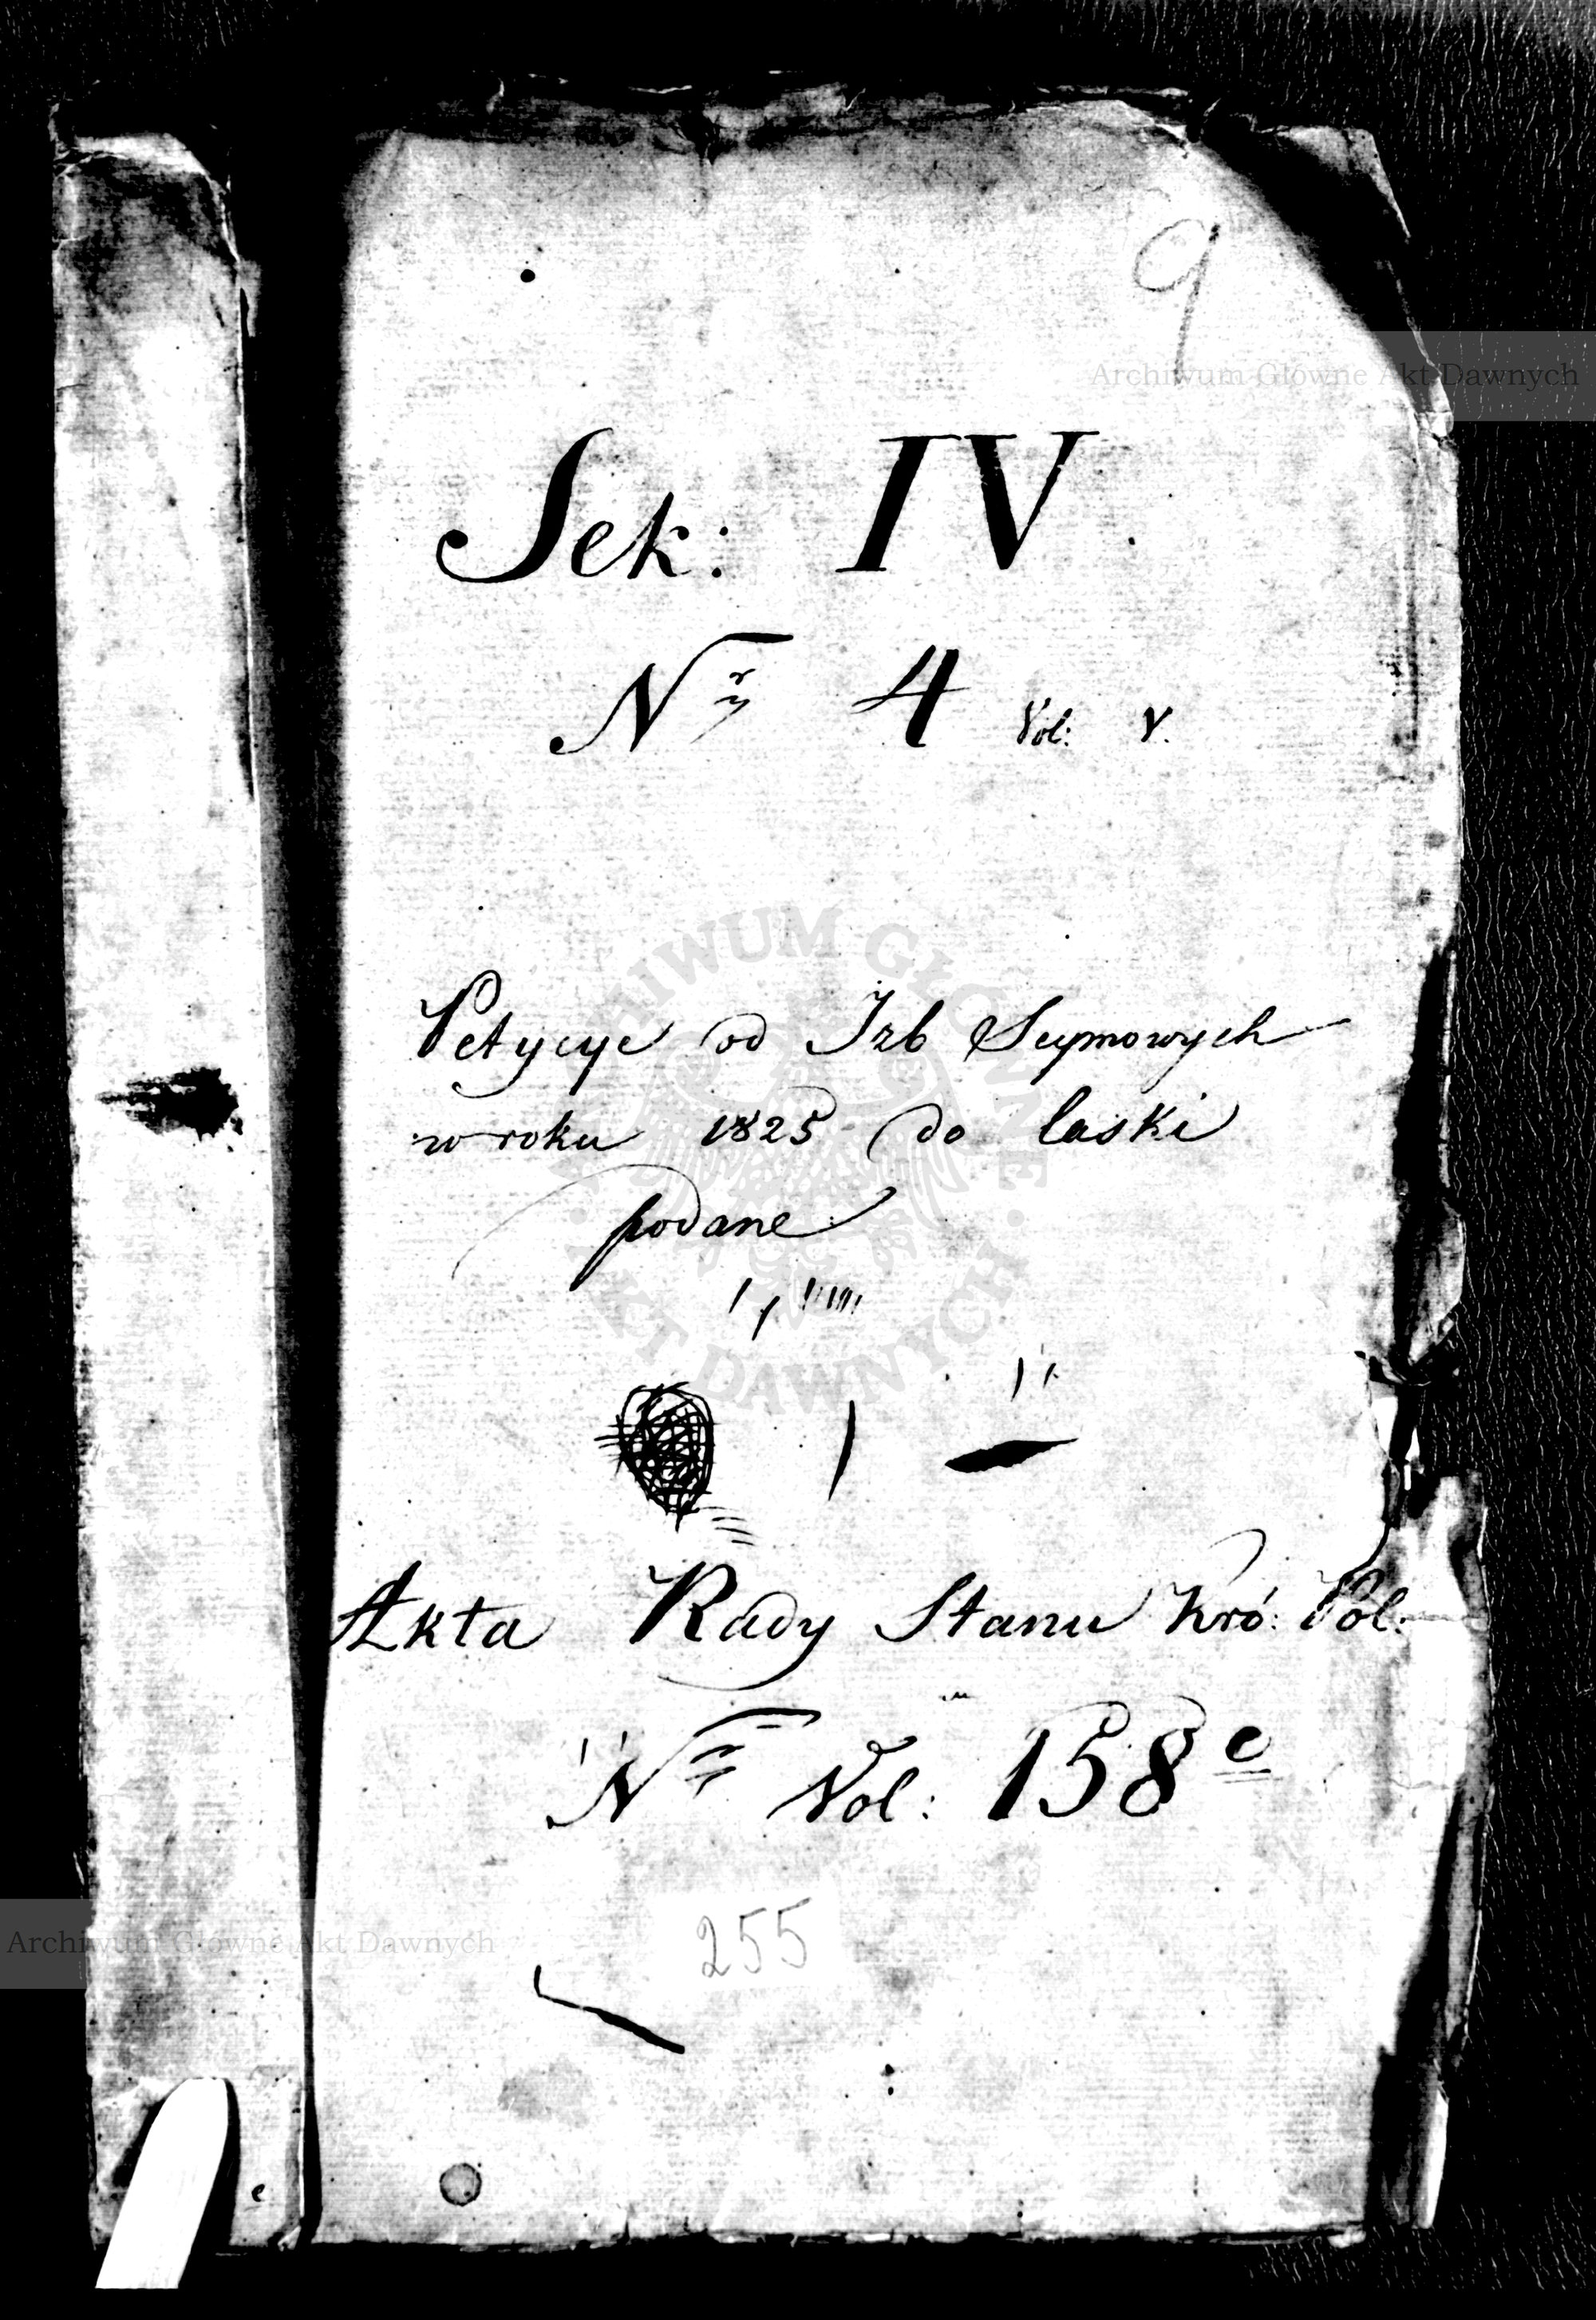 9
Archiwum Główne Akt Dawnych
Sek: IV
Nr 4 Vol: V.
Petycye od Izb Seymowych
w roku 1825 do laski
podane
ARCHIWUM GŁÓWNE AKT DAWNYCH
Akta Rady Stanu Kró: Pol:
Nr Vol: 158 e
255
Archiwum Główne Akt Dawnych
e